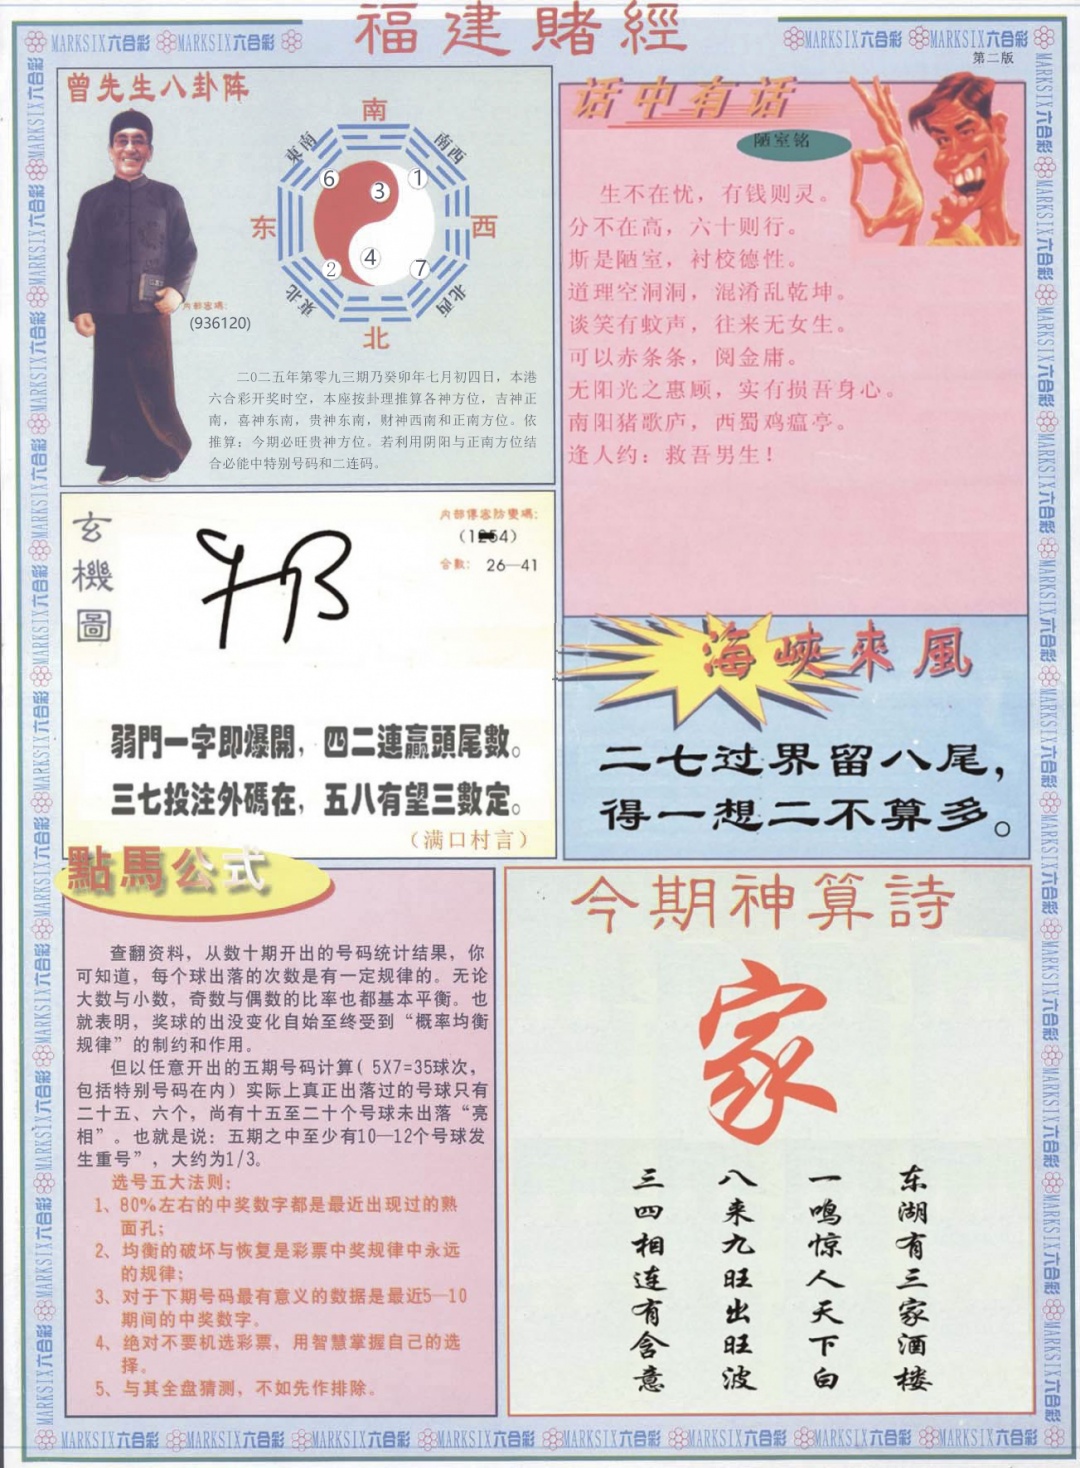 福建賭經
MARKSIX六合彩 MARKSIX六合彩
MARKSIX六合彩 MARKSIX六合彩
第二版
曾先生八卦阵
南
東南
南西
6
3
1
东
西
2
4
7
東北
北西
北
内部密碼:
(936120)
二0二五年第零九三期乃癸卯年七月初四日，本港
六合彩开奖时空，本座按卦理推算各神方位，吉神正
南，喜神东南，贵神东南，财神西南和正南方位。依
推算：今期必旺贵神方位。若利用阴阳与正南方位结
合必能中特别号码和二连码。
话中有话
陋室铭
生不在忧，有钱则灵。
分不在高，六十则行。
斯是陋室，衬校德性。
道理空洞洞，混淆乱乾坤。
谈笑有蚊声，往来无女生。
可以赤条条，阅金庸。
无阳光之惠顾，实有损吾身心。
南阳猪歌庐，西蜀鸡瘟亭。
逢人约：救吾男生！
玄機圖
内部傳密防變碼:
合數: 26—41
弱門一字即爆開，四二連贏頭尾數。
三七投注外碼在，五八有望三數定。
（满口村言）
海峽來風
二七过界留八尾，
得一想二不算多。
點馬公式
查翻资料，从数十期开出的号码统计结果，你
可知道，每个球出落的次数是有一定规律的。无论
大数与小数，奇数与偶数的比率也都基本平衡。也
就表明，奖球的出没变化自始至终受到“概率均衡
规律”的制约和作用。
但以任意开出的五期号码计算( 5X7=35球次，
包括特别号码在内）实际上真正出落过的号球只有
二十五、六个，尚有十五至二十个号球未出落“亮
相”。也就是说：五期之中至少有10—12个号球发
生重号”，大约为1/3。
选号五大法则：
1、80%左右的中奖数字都是最近出现过的熟
面孔；
2、均衡的破坏与恢复是彩票中奖规律中永远
的规律；
3、对于下期号码最有意义的数据是最近5—10
期间的中奖数字。
4、绝对不要机选彩票，用智慧掌握自己的选
择。
5、与其全盘猜测，不如先作排除。
今期神算詩
家
东湖有三家酒楼
一鸣惊人天下白
八来九旺出旺波
三四相连有含意
MARKSIX六合彩 MARKSIX六合彩 MARKSIX六合彩 MARKSIX六合彩 MARKSIX六合彩 MARKSIX六合彩 MARKSIX六合彩 MARKSIX六合彩